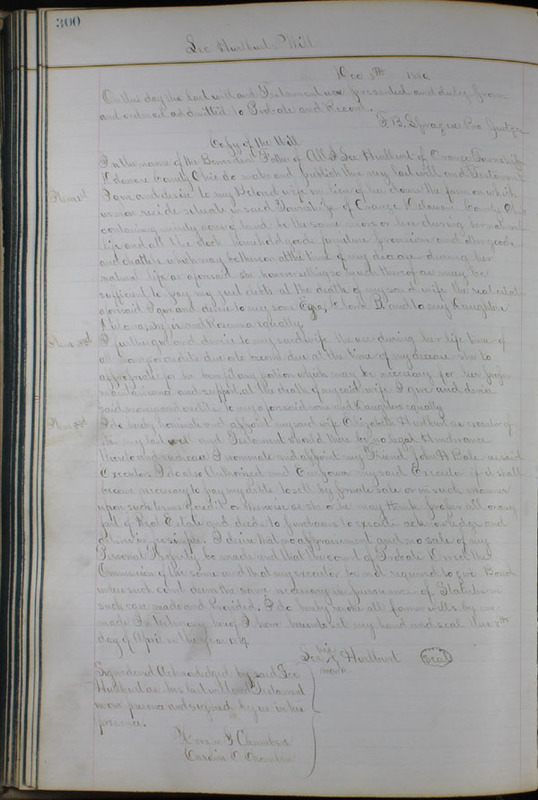 300
Hurlburt's Will
Dec 8th
On this day the last will and Testament was presented and duly proven
and ordered admitted to Probate and Record.
F. B. Sprague Pro Judge
Copy of the Will
In the name of the Benevolent Father of All I Hurlburt of Orange Township
Delaware County Ohio do make and publish this my last will and Testament
Item 1st I give and devise to my Beloved wife in lieu of her dower the farm on which
we now reside situate in said Township of Orange Delaware County Ohio
containing ninety acres of land be the same more or less during her natural
life and all the stock household goods furniture provisions and other goods
and chattels which may be thereon at the time of my decease during her
natural life as aforesaid she however selling so much thereof as may be
sufficient to pay my just debts at the death of my said wife the real estate
aforesaid I give and devise to my sons and to my Daughters
and equally
Item 2nd I further give and devise to my said wife the use during her life time of
all moneys or credits due at the time of my decease she to
appropriate for her benefit any portion which may be necessary for her proper
maintenance and support at the death of my said wife I give and devise
said money and credits to my aforesaid sons and Daughters equally
Item 3rd I do hereby nominate and appoint my said wife Elizabeth Hurlburt as executor of
this my last will and Testament should there be no legal hindrance
thereto and in case I nominate and appoint my Friend John H Cole as said
Executor. I do also Authorize and Empower my said Executor if it shall
become necessary to pay my debts to sell by private sale or in such manner
upon such terms of credit or otherwise as she or he may think proper all or any
part of Real Estate and deeds to purchasers to execute acknowledge and
deliver in fee simple. I desire that no appraisement and no sale of my
Personal Property be made and that the court of Probate direct the
omission of the same and that my executor be not required to give Bond
unless such court deems the same necessary in pursuance of Statute in
such case made and Provided. I do hereby revoke all former wills by me
made In testimony hereof I have hereunto set my hand and seal this 8th
day of April in the year
his
Hurlburt (Seal)
mark
Signed and Acknowledged by said
Hurlburt as his last will and Testament
in our presence and signed by us in his
presence.
Chambers